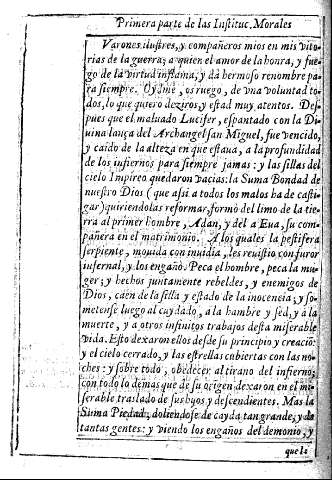 Primera parte de las Instituc. Morales
Varones ilustres, y compañeros mios en mis vito-
rias de la guerra; a quien el amor de la honra, y fue-
go de la virtud inflama, y da hermoso renombre pa-
ra siempre. Oydme, os ruego, de vna voluntad to-
dos, lo que quiero deziros, y estad muy atentos. Des-
pues que el maluado Lucifer, espantado con la Di-
uina lança del Archangel san Miguel, fue vencido,
y caido de la alteza en que estaua, a la profundidad
de los infiernos para siempre jamas: y las sillas del
cielo Impireo quedaron vacias: la Suma Bondad de
nuestro Dios (que assi a todos los malos ha de casti-
gar) quiriendolas reformar, formò del limo de la tie-
rra al primer hombre, Adan, y del a Eua, su com-
pañera en el matrimonio. A los quales la pestifera
serpiente, mouida con inuidia, les reuistio con furor
infernal, y los engañò. Peca el hombre, peca la mu-
ger; y hechos juntamente rebeldes, y enemigos de
Dios, caen de la silla y estado de la inocencia, y so-
metense luego al cuydado, a la hambre y sed, y a la
muerte, y a otros infinitos trabajos desta miserable
vida. Esto dexaron ellos desde su principio y creaciõ:
y el cielo cerrado, y las estrellas cubiertas con las no-
ches: y sobre todo, obedecer al tirano del infierno;
con todo lo demas que de su origen dexaron en el mi-
serable traslado de sus hijos y descendientes. Mas la
Suma Piedad, doliendose de cayda tan grande, y de
tantas gentes: y viendo los engaños del demonio, y
que la